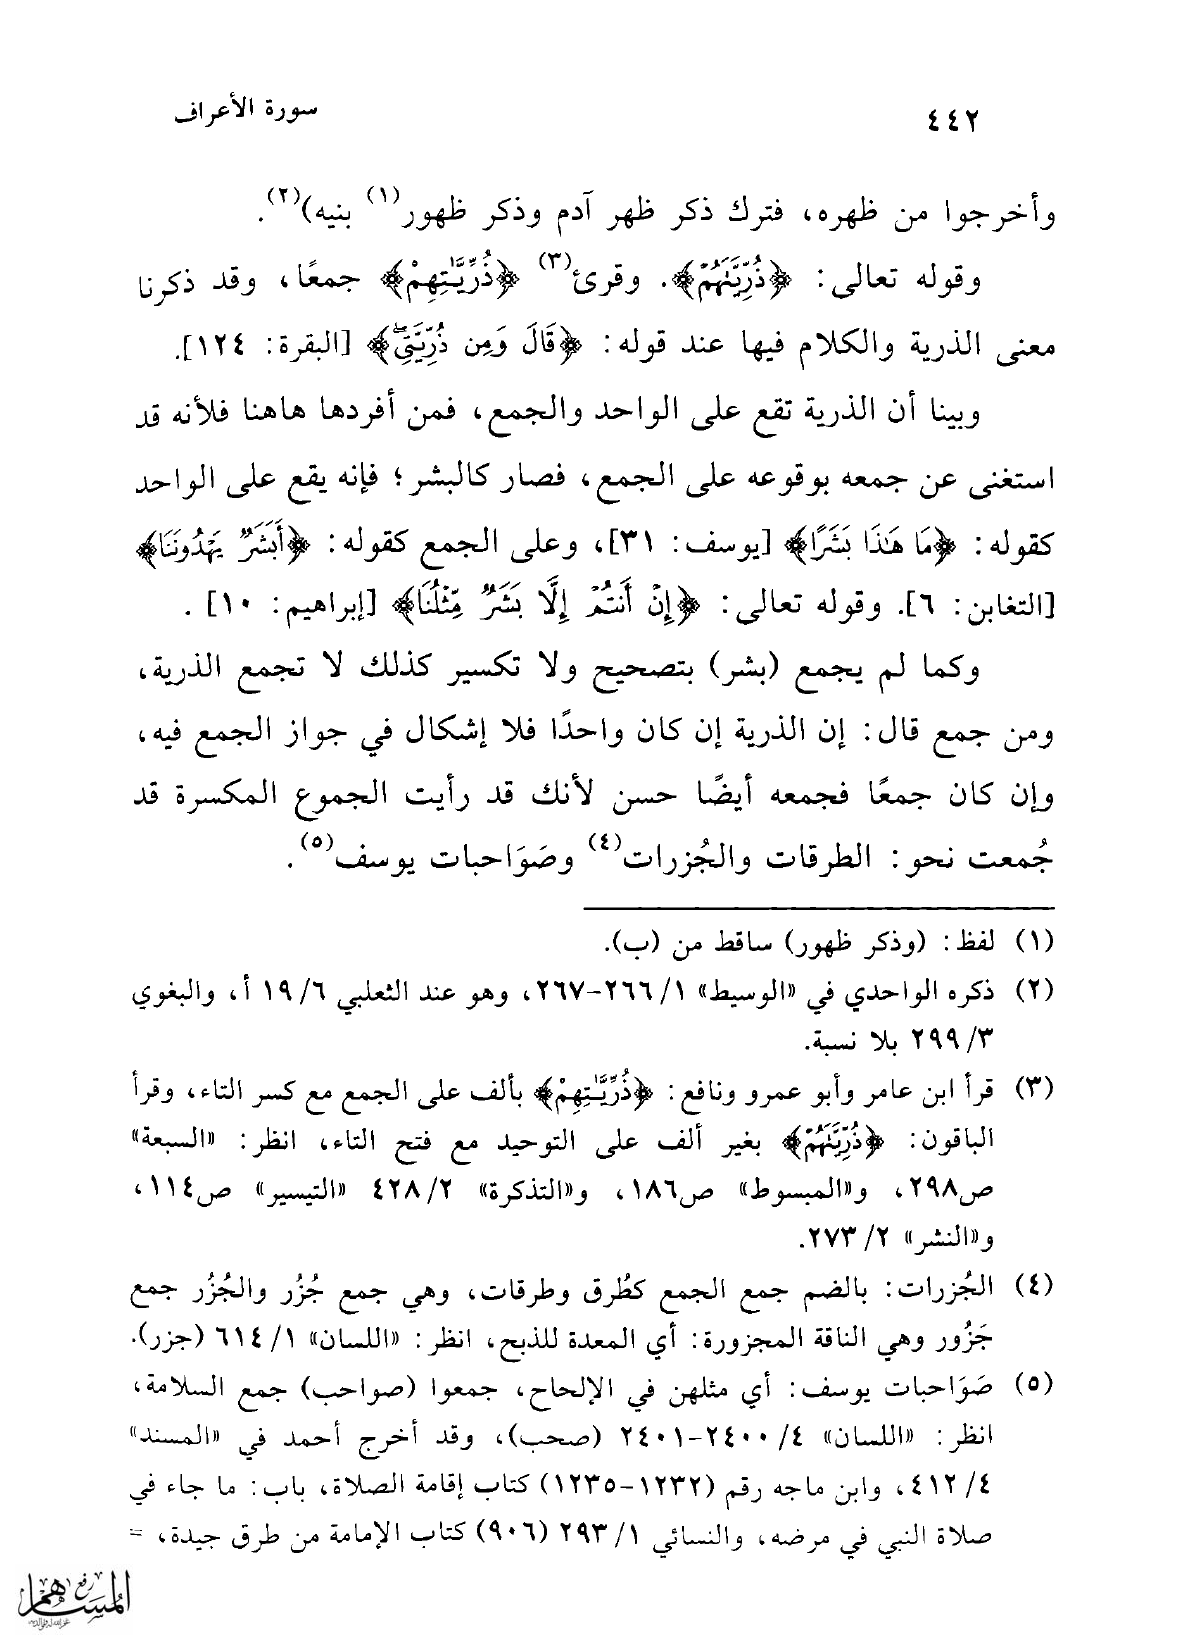 ٤٤٢
سورة الأعراف
وأخرجوا من ظهره، فترك ذكر ظهر آدم وذكر ظهور(١) بنيه)(٢).
وقوله تعالى: ﴿ذُرِّيَّتَهُمْ﴾. وقرئ(٣) ﴿ذُرِّيَّـٰتِهِمْ﴾ جمعًا، وقد ذكرنا
معنى الذرية والكلام فيها عند قوله: ﴿قَالَ وَمِن ذُرِّيَّتِىۖ﴾ [البقرة: ١٢٤].
وبينا أن الذرية تقع على الواحد والجمع، فمن أفردها هاهنا فلأنه قد
استغنى عن جمعه بوقوعه على الجمع، فصار كالبشر؛ فإنه يقع على الواحد
كقوله: ﴿مَا هَـٰذَا بَشَرًا﴾ [يوسف: ٣١]، وعلى الجمع كقوله: ﴿أَبَشَرٌ يَهْدُونَنَا﴾
[التغابن: ٦]. وقوله تعالى: ﴿إِنْ أَنتُمْ إِلَّا بَشَرٌ مِّثْلُنَا﴾ [إبراهيم: ١٠] .
وكما لم يجمع (بشر) بتصحيح ولا تكسير كذلك لا تجمع الذرية،
ومن جمع قال: إن الذرية إن كان واحدًا فلا إشكال في جواز الجمع فيه،
وإن كان جمعًا فجمعه أيضًا حسن لأنك قد رأيت الجموع المكسرة قد
جُمعت نحو: الطرقات والجُزرات(٤) وصَوَاحبات يوسف(٥).
(١) لفظ: (وذكر ظهور) ساقط من (ب).
(٢) ذكره الواحدي في «الوسيط» ١/ ٢٦٦-٢٦٧، وهو عند الثعلبي ٦/ ١٩ أ، والبغوي
٣/ ٢٩٩ بلا نسبة.
(٣) قرأ ابن عامر وأبو عمرو ونافع: ﴿ذُرِّيَّـٰتِهِمْ﴾ بألف على الجمع مع كسر التاء، وقرأ
الباقون: ﴿ذُرِّيَّتَهُمْ﴾ بغير ألف على التوحيد مع فتح التاء، انظر: «السبعة»
ص٢٩٨، و«المبسوط» ص١٨٦، و«التذكرة» ٢/ ٤٢٨ «التيسير» ص١١٤،
و«النشر» ٢/ ٢٧٣.
(٤) الجُزرات: بالضم جمع الجمع كطُرق وطرقات، وهي جمع جُزُر والجُزُر جمع
جَزُور وهي الناقة المجزورة: أي المعدة للذبح، انظر: «اللسان» ١/ ٦١٤ (جزر).
(٥) صَوَاحبات يوسف: أي مثلهن في الإلحاح، جمعوا (صواحب) جمع السلامة،
انظر: «اللسان» ٤/ ٢٤٠٠-٢٤٠١ (صحب)، وقد أخرج أحمد في «المسند»
٤/ ٤١٢، وابن ماجه رقم (١٢٣٢-١٢٣٥) كتاب إقامة الصلاة، باب: ما جاء في
صلاة النبي في مرضه، والنسائي ١/ ٢٩٣ (٩٠٦) كتاب الإمامة من طرق جيدة، =